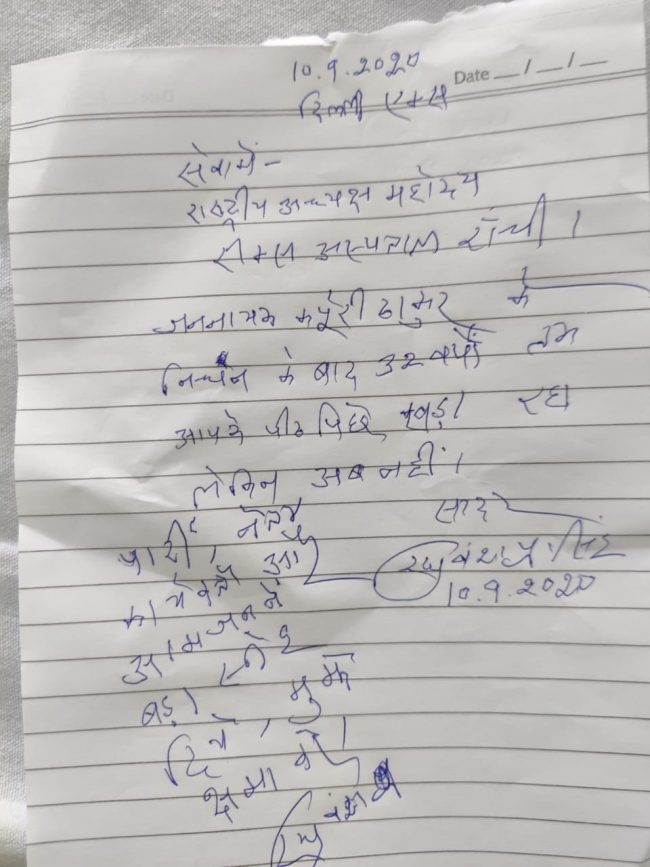 10.9.2020
Date __/__/__
दिल्ली एम्स
सेवा में -
राष्ट्रीय अध्यक्ष महोदय
रीम्स अस्पताल राँची।
जननायक कर्पूरी ठाकुर के
निधन के बाद 32 वर्षों तक
आपके पीठ पीछे खड़ा रहा
लेकिन अब नहीं।
पार्टी, नेता
कार्यकर्ता और
आमजन ने
बड़ा स्नेह
दिया, मुझे
क्षमा करें।
सादर
रघुवंश प्रसाद सिंह
10.9.2020